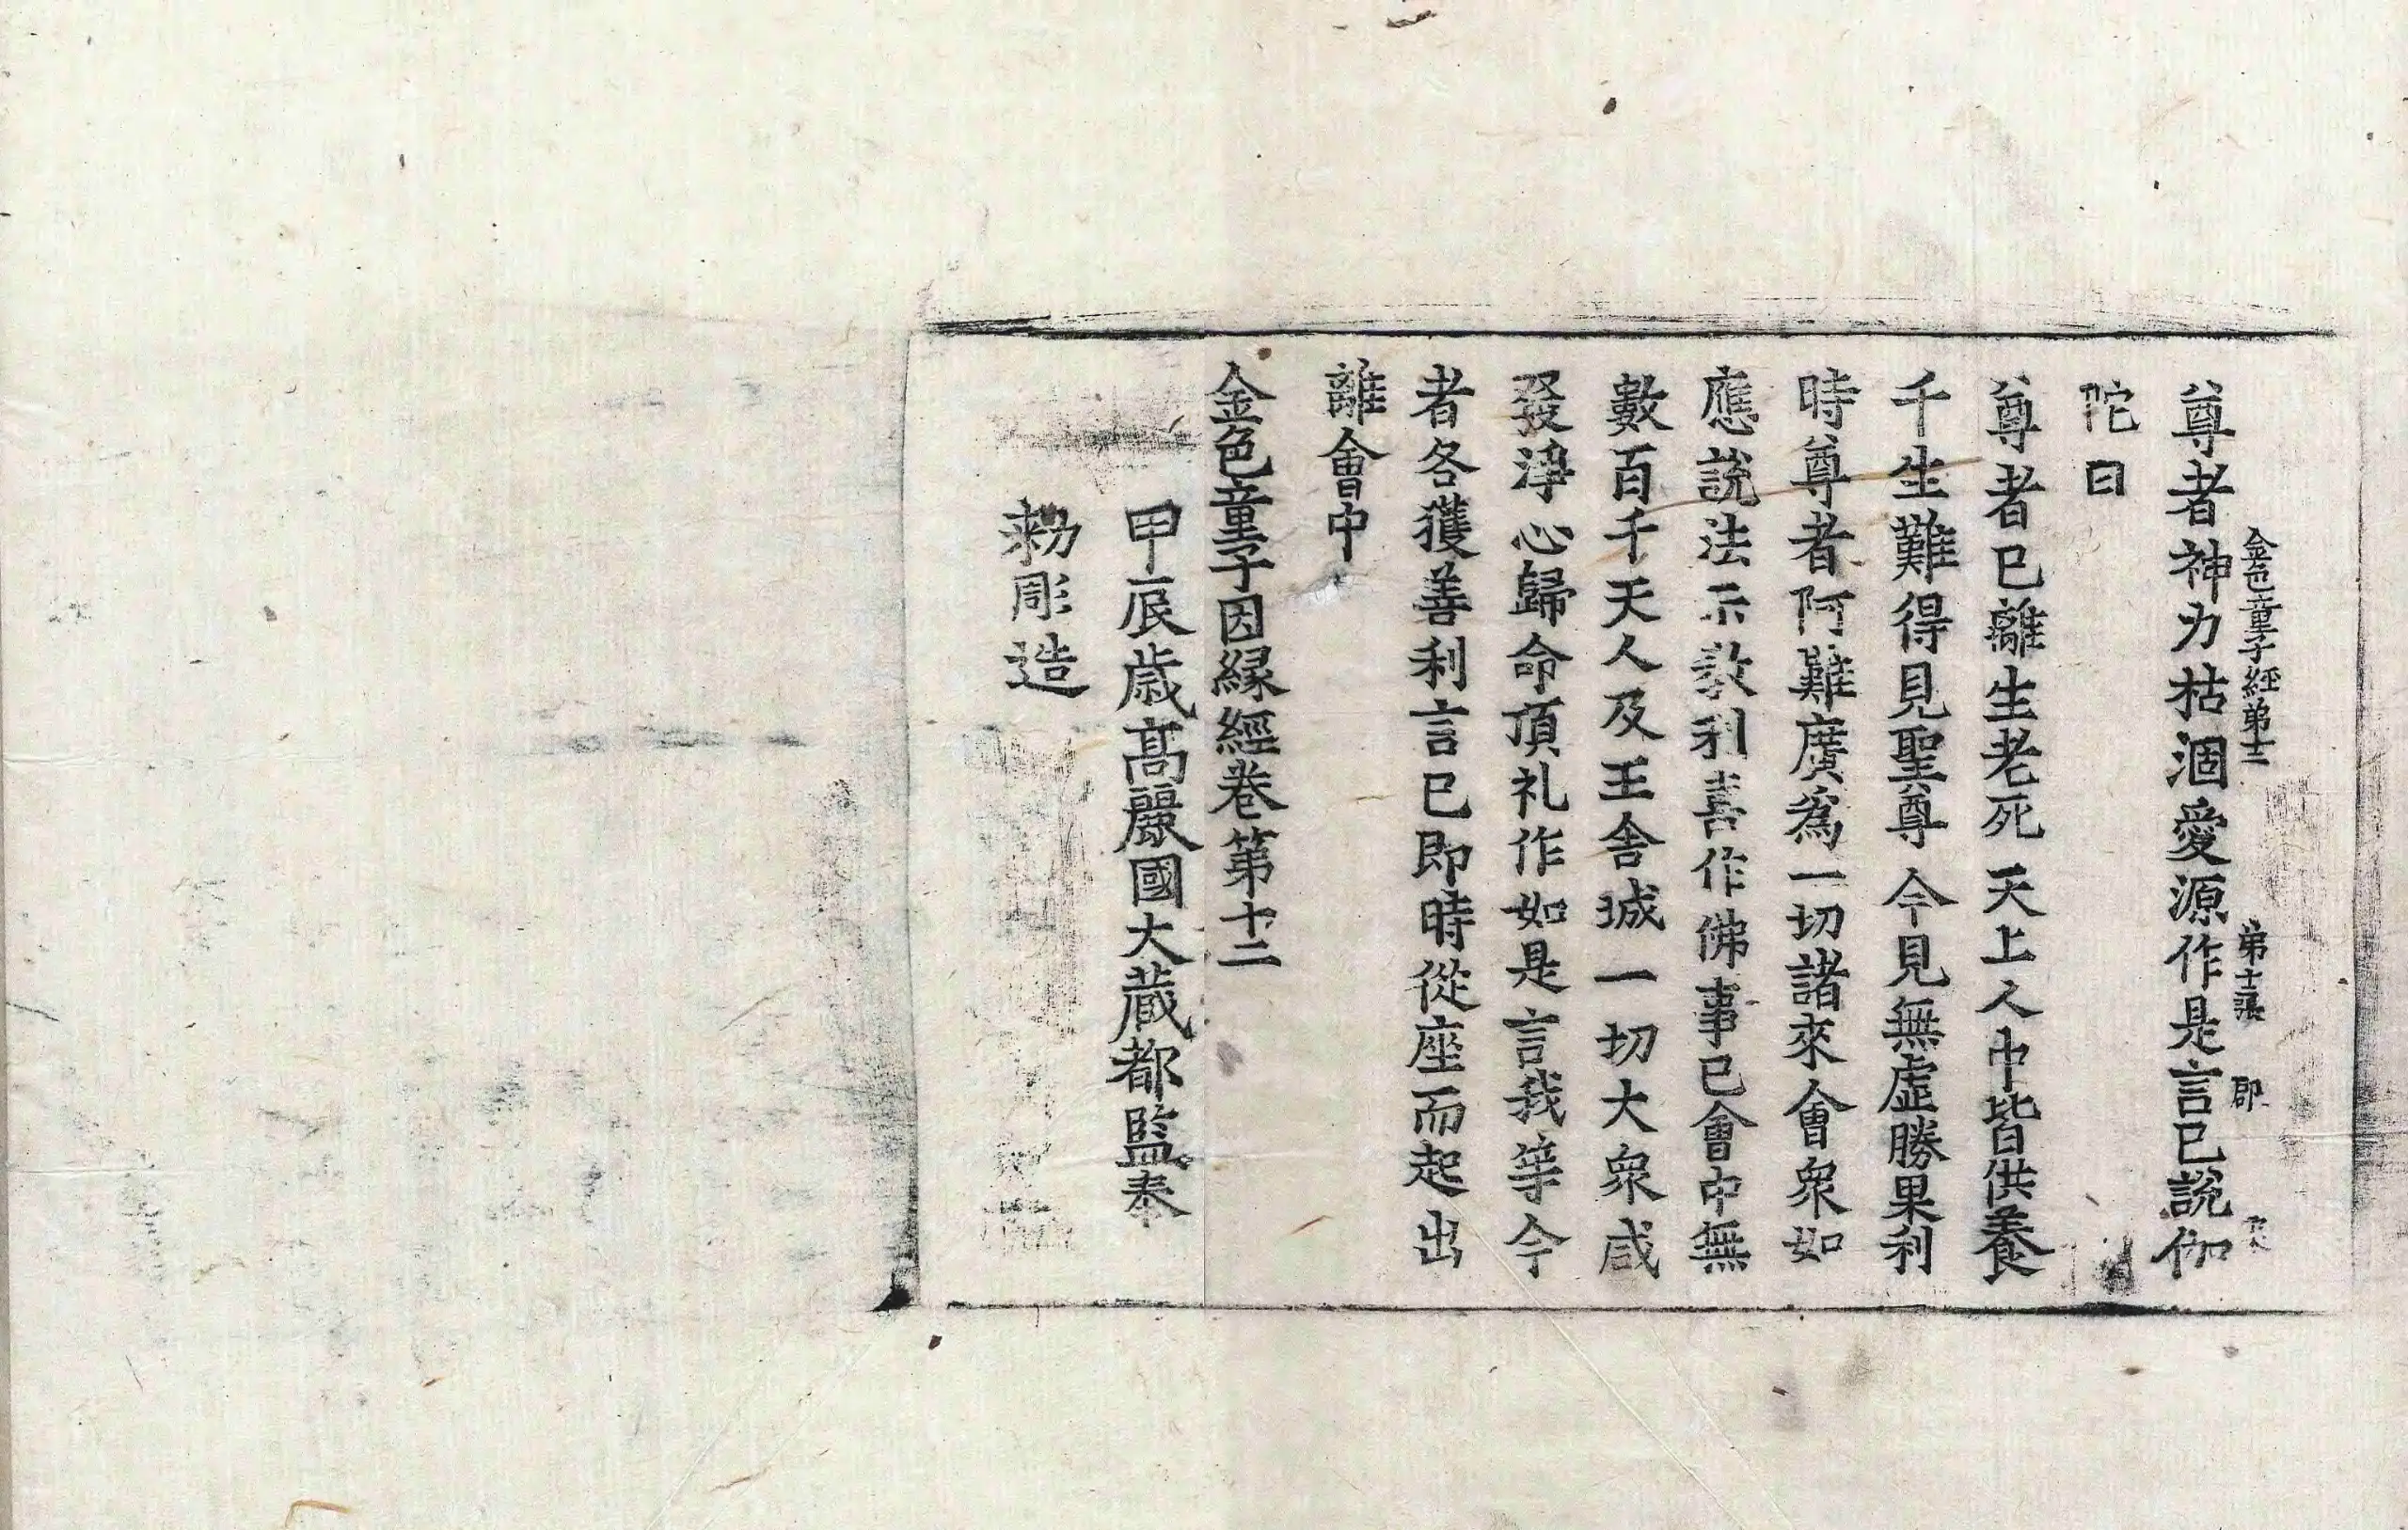 金色童子經第十二 第十二張 郡
尊者神力枯涸愛源作是言已說伽
陀曰
尊者已離生老死 天上人中皆供養
千生難得見聖尊 今見無虛勝果利
時尊者阿難廣爲一切諸來會衆如
應說法示教利喜作佛事已會中無
數百千天人及王舍城一切大衆咸
發淨心歸命頂礼作如是言我等今
者各獲善利言已即時從座而起出
離會中
金色童子因緣經卷第十二
甲辰歳高麗國大藏都監奉
勑彫造